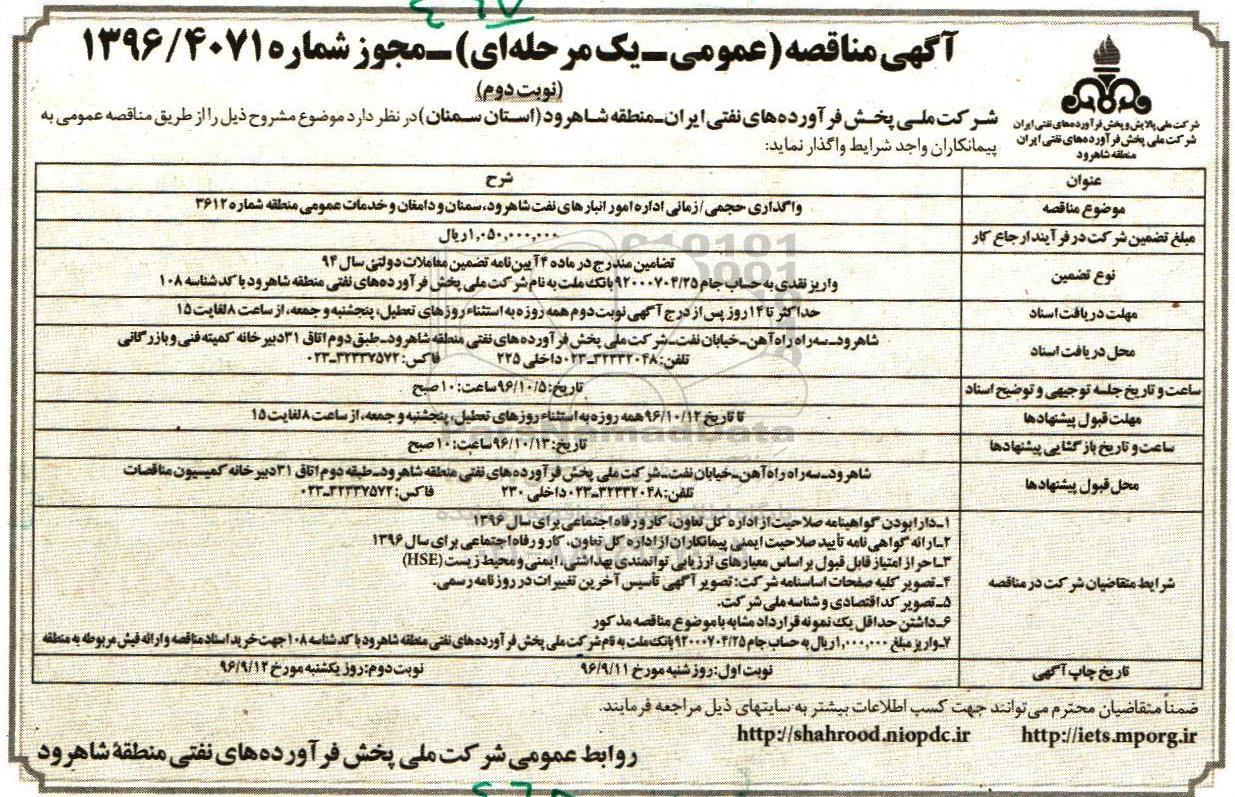 آگهی مناقصه (عمومی ـ یک مرحله‌ای) ـ مجوز شماره ۱۳۹۶/۴۰۷۱
(نوبت دوم)
شرکت ملی پالایش و پخش فرآورده‌های نفتی ایران
شرکت ملی پخش فرآورده‌های نفتی ایران
منطقه شاهرود
شرکت ملـی پخـش فرآورده‌های نفتی ایران ـ منطقه شاهرود (استان سمنان) در نظر دارد موضوع مشروح ذیل را از طریق مناقصه عمومی به
پیمانکاران واجد شرایط واگذار نماید:
عنوان شرح
موضوع مناقصه واگذاری حجمی/زمانی اداره امور انبارهای نفت شاهرود، سمنان و دامغان و خدمات عمومی منطقه شماره ۳۶۱۲
مبلغ تضمین شرکت در فرآیند ارجاع کار ۱,۰۵۰,۰۰۰,۰۰۰ریال
نوع تضمین
تضامین مندرج در ماده ۴ آیین نامه تضمین معاملات دولتی سال ۹۴
واریز نقدی به حساب جام ۹۲۰۰۰۷۰۴/۲۵ بانک ملت به نام شرکت ملی پخش فرآورده‌های نفتی منطقه شاهرود با کد شناسه ۱۰۸
مهلت دریافت اسناد حداکثر تا ۱۴ روز پس از درج آگهی نوبت دوم همه روزه به استثناء روزهای تعطیل، پنجشنبه و جمعه، از ساعت ۸ لغایت ۱۵
محل دریافت اسناد
شاهرود ـ سه راه راه‌آهن ـ خیابان نفت ـ شرکت ملی پخش فرآورده‌های نفتی منطقه شاهرود ـ طبق دوم اتاق ۳۱ دبیرخانه کمیته فنی و بازرگانی
تلفن: ۳۲۳۳۲۰۴۸-۰۲۳ داخلی ۲۲۵ فاکس: ۳۲۳۳۷۵۷۲-۰۲۳
ساعت و تاریخ جلسه توجیهی و توضیح اسناد تاریخ: ۹۶/۱۰/۵ ساعت: ۱۰ صبح
مهلت قبول پیشنهادها تا تاریخ ۹۶/۱۰/۱۲ همه روزه به استثناء روزهای تعطیل، پنجشنبه و جمعه، از ساعت ۸ لغایت ۱۵
ساعت و تاریخ بازگشایی پیشنهادها تاریخ: ۹۶/۱۰/۱۳ ساعت: ۱۰ صبح
محل قبول پیشنهادها
شاهرود ـ سه راه راه‌آهن ـ خیابان نفت ـ شرکت ملی پخش فرآورده‌های نفتی منطقه شاهرود ـ طبقه دوم اتاق ۳۱ دبیرخانه کمیسیون مناقصات
تلفن: ۳۲۳۳۲۰۴۸-۰۲۳ داخلی ۲۳۰ فاکس: ۳۲۳۳۷۵۷۲-۰۲۳
شرایط متقاضیان شرکت در مناقصه
۱ـ دارا بودن گواهینامه صلاحیت از اداره کل تعاون، کار و رفاه اجتماعی برای سال ۱۳۹۶
۲ـ ارائه گواهی نامه تأیید صلاحیت ایمنی پیمانکاران از اداره کل تعاون، کار و رفاه اجتماعی برای سال ۱۳۹۶
۳ـ احراز امتیاز قابل قبول بر اساس معیارهای ارزیابی توانمندی بهداشتی، ایمنی و محیط زیست (HSE)
۴ـ تصویر کلیه صفحات اساسنامه شرکت: تصویر آگهی تأسیس آخرین تغییرات در روزنامه رسمی.
۵ـ تصویر کد اقتصادی و شناسه ملی شرکت.
۶ـ داشتن حداقل یک نمونه قرارداد مشابه با موضوع مناقصه مذکور
۷ـ واریز مبلغ ۱,۰۰۰,۰۰۰ریال به حساب جام ۹۲۰۰۰۷۰۴/۲۵ بانک ملت به نام شرکت ملی پخش فرآورده‌های نفتی منطقه شاهرود با کد شناسه ۱۰۸ جهت خرید اسناد مناقصه و ارائه فیش مربوطه به منطقه
تاریخ چاپ آگهی نوبت اول: روز شنبه مورخ ۹۶/۹/۱۱ نوبت دوم: روز یکشنبه مورخ ۹۶/۹/۱۲
ضمناً متقاضیان محترم می‌توانند جهت کسب اطلاعات بیشتر به سایتهای ذیل مراجعه فرمایند.
http://iets.mporg.ir http://shahrood.niopdc.ir
روابط عمومی شرکت ملی پخش فرآورده‌های نفتی منطقهٔ شاهرود